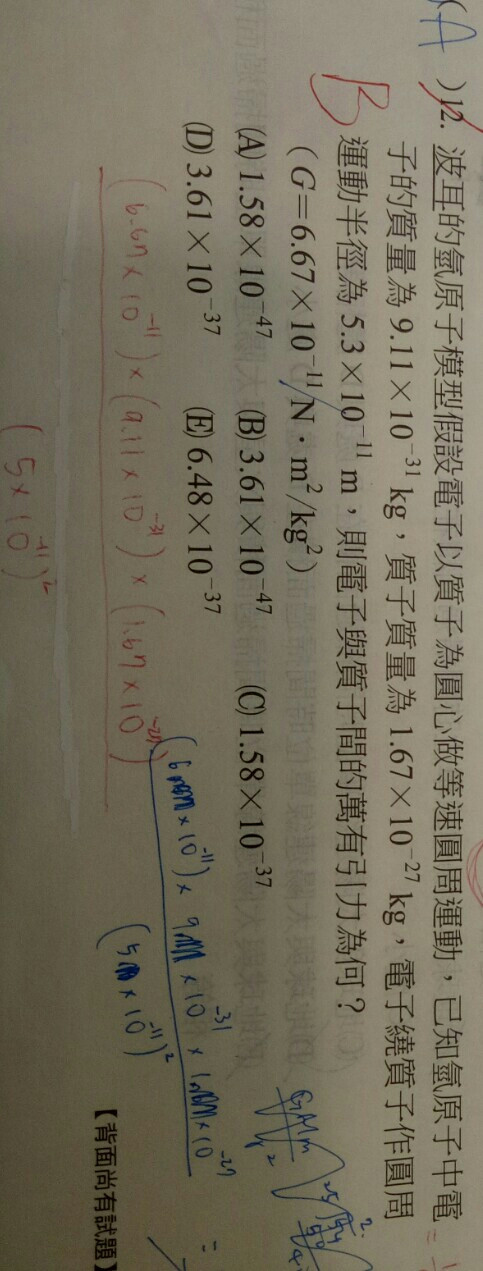 (A)12. 波耳的氫原子模型假設電子以質子為圓心做等速圓周運動,已知氫原子中電
子的質量為 9.11×10⁻³¹ kg,質子質量為 1.67×10⁻²⁷ kg,電子繞質子作圓周
B 運動半徑為 5.3×10⁻¹¹ m,則電子與質子間的萬有引力為何?
(G=6.67×10⁻¹¹ N·m²/kg²)
(A) 1.58×10⁻⁴⁷ (B) 3.61×10⁻⁴⁷ (C) 1.58×10⁻³⁷
(D) 3.61×10⁻³⁷ (E) 6.48×10⁻³⁷
(6.67×10⁻¹¹)×(9.11×10⁻³¹)×(1.67×10⁻²⁷)
(5×10⁻¹¹)²
GMm
【背面尚有試題】